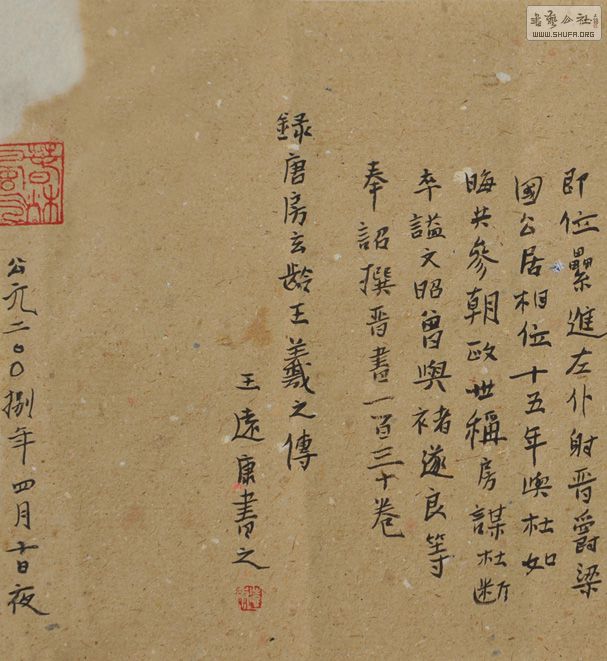 即位累進左仆射晋爵梁
國公居相位十五年與杜如
晦共參朝政世稱房謀杜断
卒謚文昭曾與褚遂良等
奉詔撰晋書一百三十卷
録唐房玄龄王羲之傳
王遠康書之
公元二〇〇捌年四月十日夜
書藝公社
WWW.SHUFA.ORG